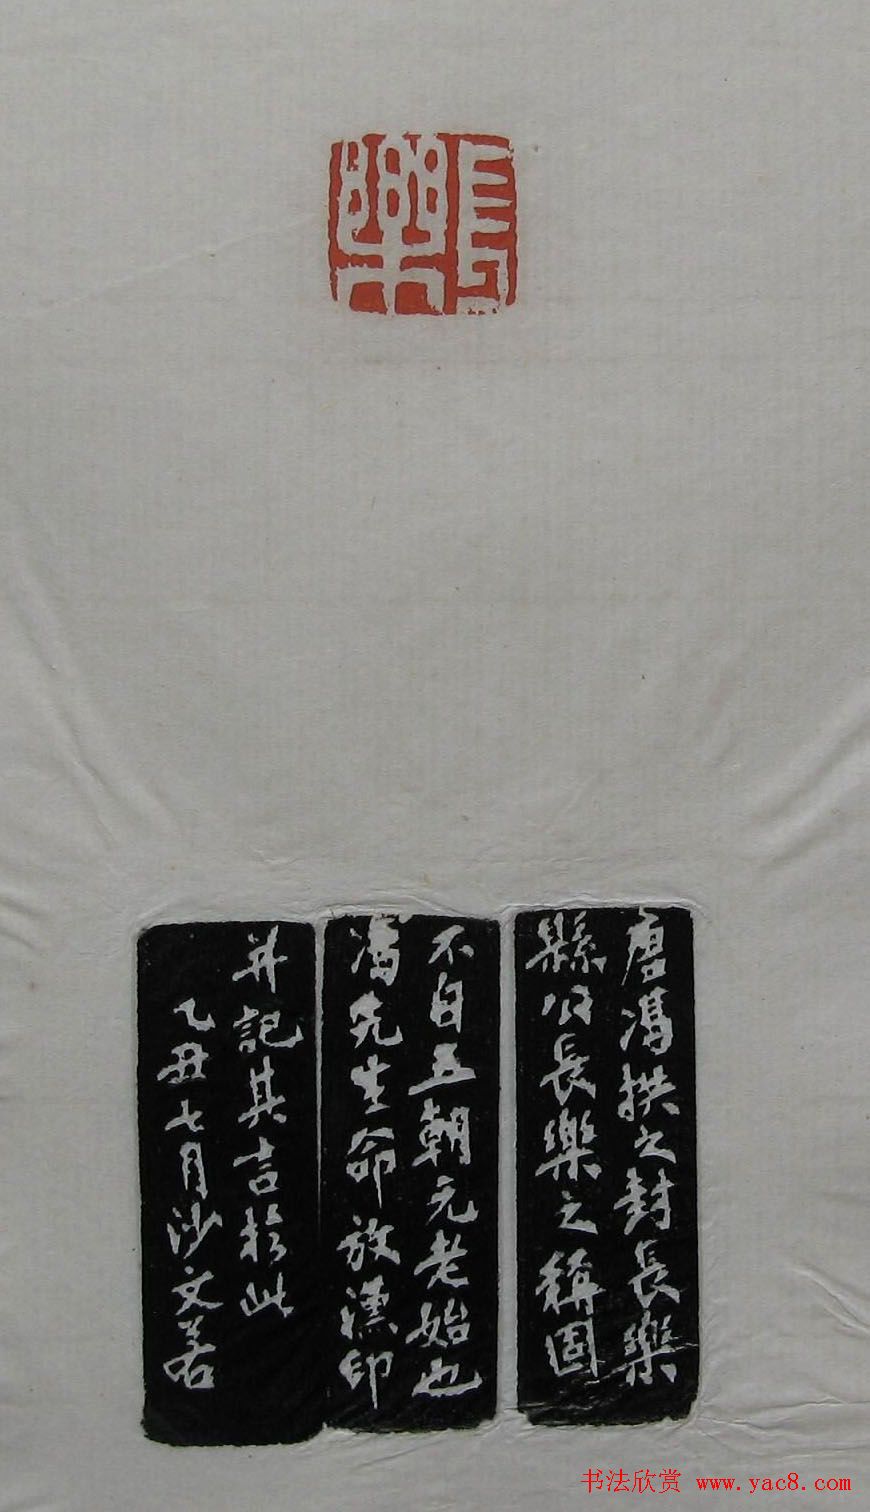 長樂
唐馮拱之封長樂
縣公長樂之稱固
不自五朝元老始也
馮先生命放漢印
并記其言於此
乙丑七月沙文若
书法欣赏 www.yac8.com